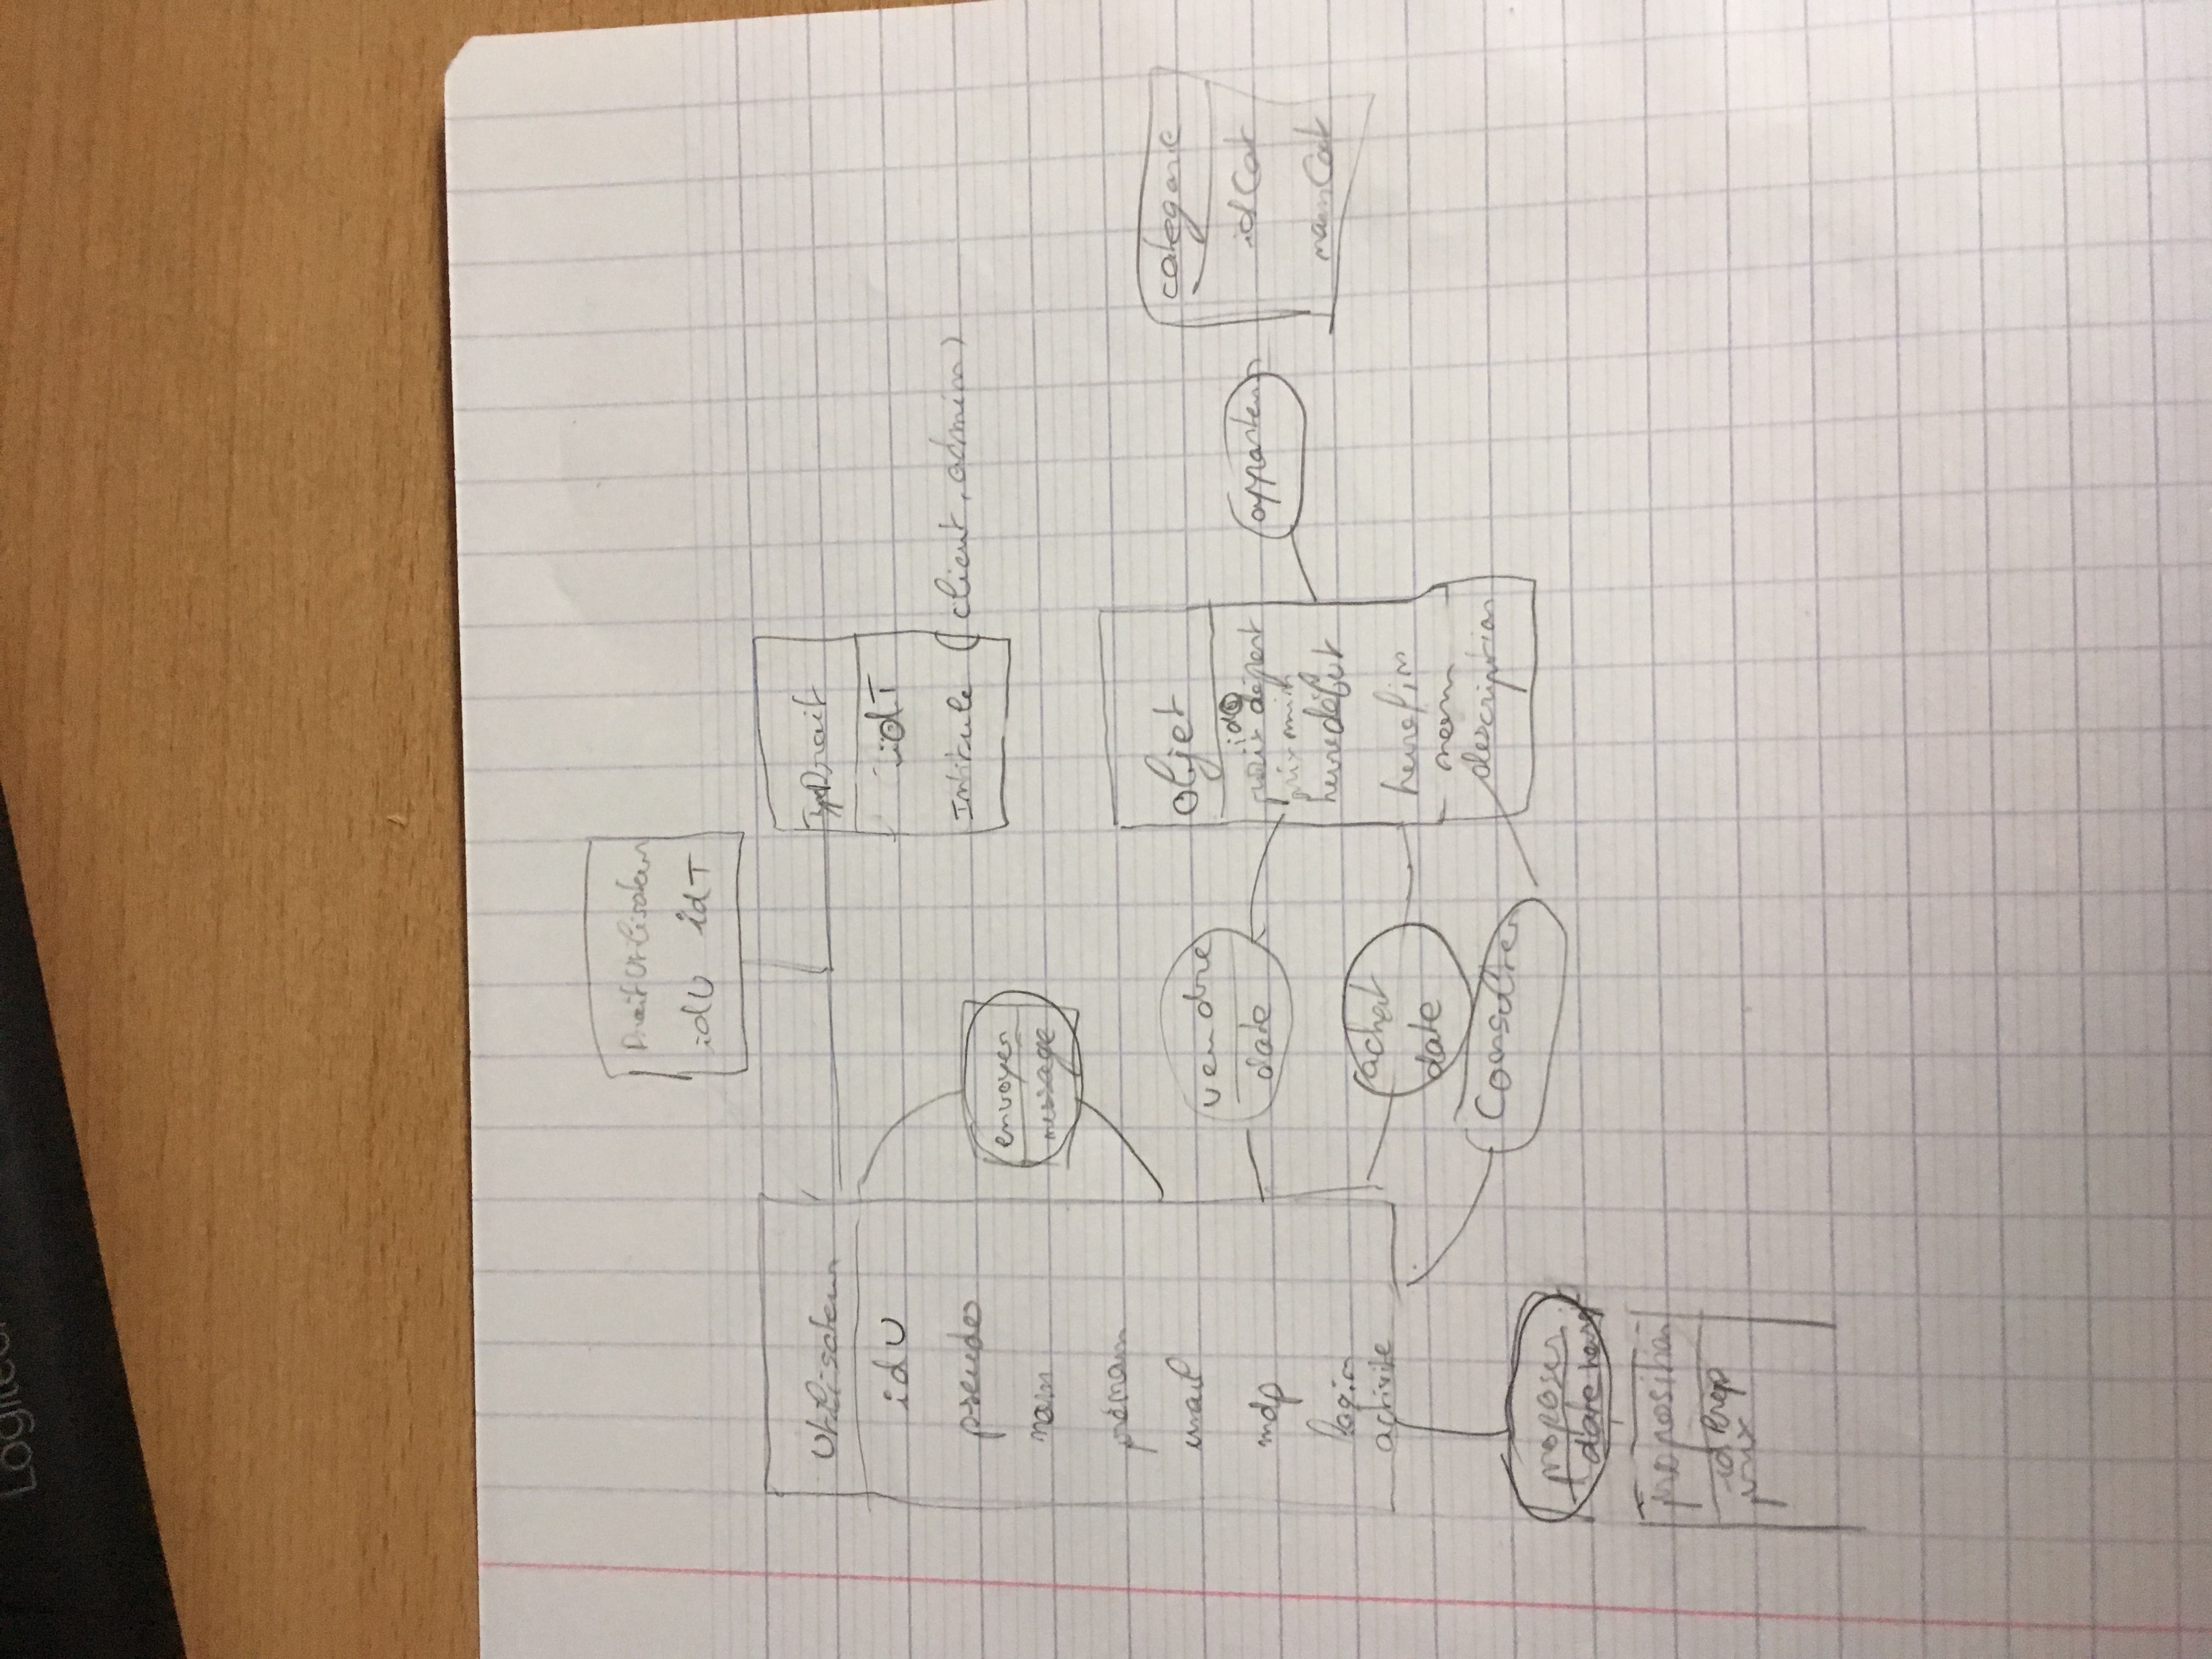 DroitUtilisateur
idU idT
Utilisateur
idU
pseudo
nom
prénom
mail
mdp
login
activite
TypDroit
idT
Intitule (client, admin)
envoyer
message
vendre
date
achat
date
Consulter
objet
idO
prix départ
prix min
heure début
heure fin
nom
description
appartenir
categorie
idCat
nomCat
proposer
date heure
proposition
idProp
prix